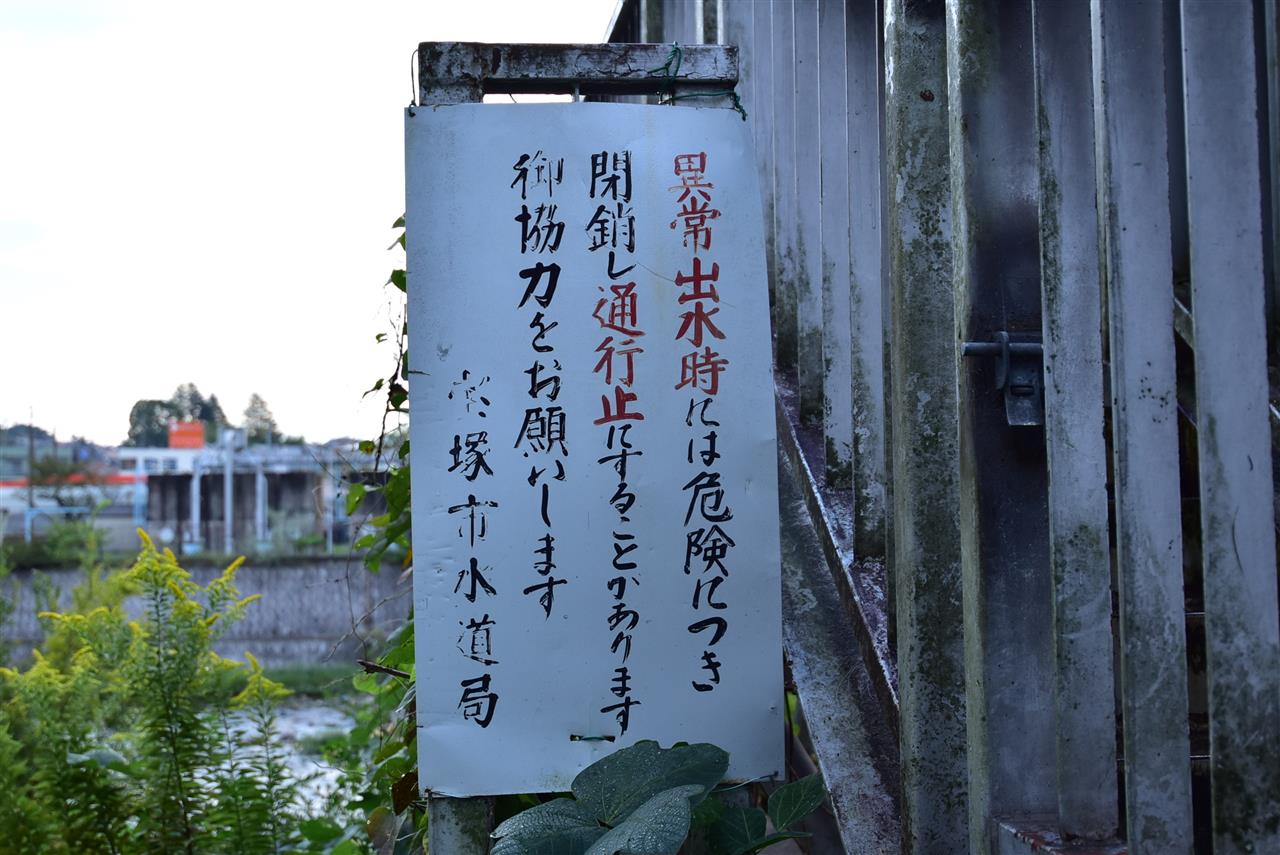 異常出水時には危険につき
閉鎖し通行止にすることがあります
御協力をお願いします
塚市水道局